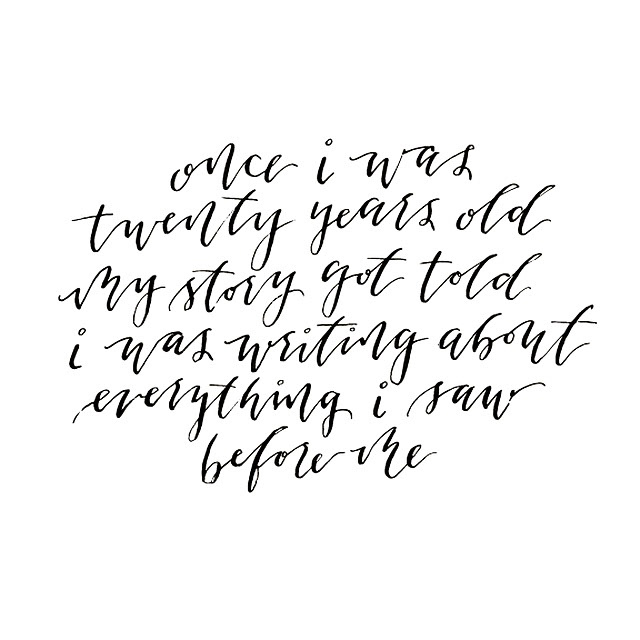 once i was
twenty years old
my story got told
i was writing about
everything i saw
before me